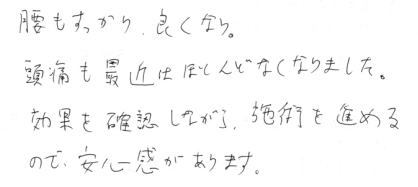 腰もすっかり、良くなり。
頭痛も最近はほとんどなくなりました。
効果を確認しながら、施術を進める
ので、安心感があります。